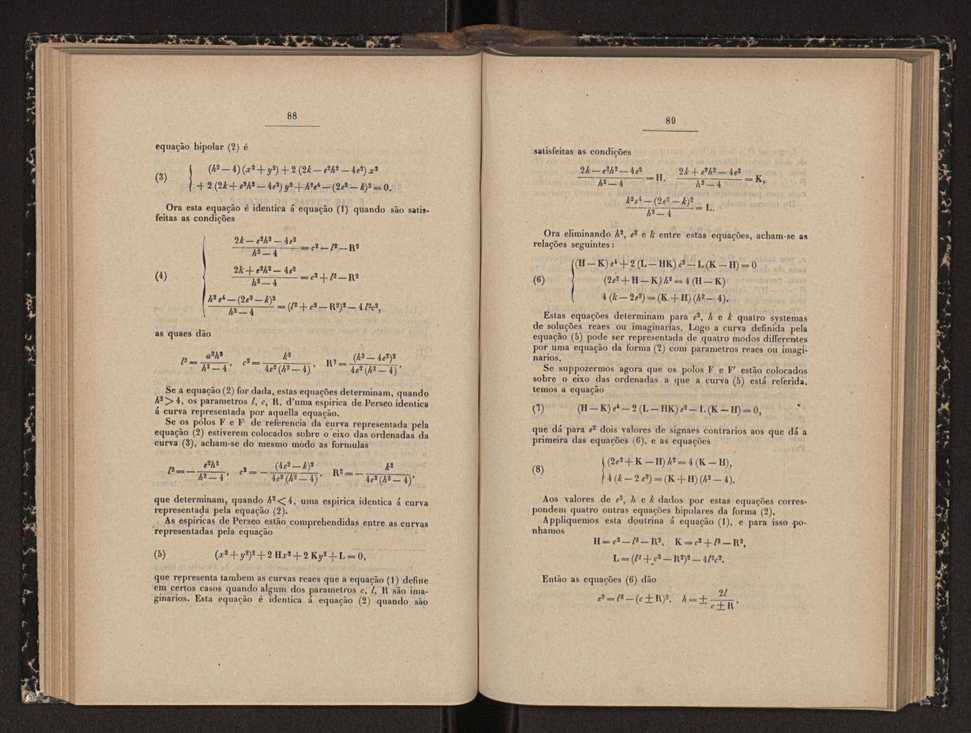 88
equação bipolar (2) é
(3) { (h² — 4) (x² + y²) + 2 (2k — e²h² — 4e²) x²
+ 2 (2k + e²h² — 4e²) y² + h²e⁴ — (2e² — k)² = 0.
Ora esta equação é identica á equação (1) quando são satis-
feitas as condições
(2k — e²h² — 4e²) / (h² — 4) = c² — l² — R²
(4) { (2k + e²h² — 4e²) / (h² — 4) = c² + l² — R²
(h²e⁴ — (2e² — k)²) / (h² — 4) = (l² + c² — R²)² — 4 l²c²,
as quaes dão
l² = e²h² / (h² — 4), c² = k² / (4e² (h² — 4)), R² = (k — 4e²)² / (4e² (h² — 4)).
Se a equação (2) for dada, estas equações determinam, quando
h² > 4, os parametros l, c, R, d'uma espirica de Perseo identica
á curva representada por aquella equação.
Se os pólos F e F' de referencia da curva representada pela
equação (2) estiverem colocados sobre o eixo das ordenadas da
curva (3), acham-se do mesmo modo as formulas
l² = — e²h² / (h² — 4), c² = — (4e² — k)² / (4e² (h² — 4)), R² = — k² / (4e² (h² — 4)),
que determinam, quando h² < 4, uma espirica identica á curva
representada pela equação (2).
As espiricas de Perseo estão comprehendidas entre as curvas
representadas pela equação
(5) (x² + y²)² + 2 Hx² + 2 Ky² + L = 0,
que representa tambem as curvas reaes que a equação (1) define
em certos casos quando algum dos parametros c, l, R são ima-
ginarios. Esta equação é identica á equação (2) quando são
89
satisfeitas as condições
(2k — e²h² — 4e²) / (h² — 4) = H, (2k + e²h² — 4e²) / (h² — 4) = K,
(h²e⁴ — (2e² — k)²) / (h² — 4) = L.
Ora eliminando h², e² e k entre estas equações, acham-se as
relações seguintes:
(H — K) e⁴ + 2 (L — HK) e² — L (K — H) = 0
(6) { (2e² + H — K) h² = 4 (H — K)
4 (k — 2e²) = (K + H) (h² — 4).
Estas equações determinam para e², h e k quatro systemas
de soluções reaes ou imaginarias. Logo a curva definida pela
equação (5) pode ser representada de quatro modos differentes
por uma equação da forma (2) com parametros reaes ou imagi-
narios.
Se suppozermos agora que os polos F e F' estão colocados
sobre o eixo das ordenadas a que a curva (5) está referida,
temos a equação
(7) (H — K) e⁴ — 2 (L — HK) e² — L (K — H) = 0,
que dá para e² dois valores de signaes contrarios aos que dá a
primeira das equações (6), e as equações
(8) { (2e² + K — H) h² = 4 (K — H),
4 (k — 2 e²) = (K + H) (h² — 4).
Aos valores de e², h e k dados por estas equações corres-
pondem quatro outras equações bipolares da forma (2).
Appliquemos esta doutrina á equação (1), e para isso po-
nhamos
H = c² — l² — R², K = c² + l² — R²,
L = (l² + c² — R²)² — 4l²c².
Então as equações (6) dão
e² = l² — (c ± R)², h = ± 2l / (c ± R).